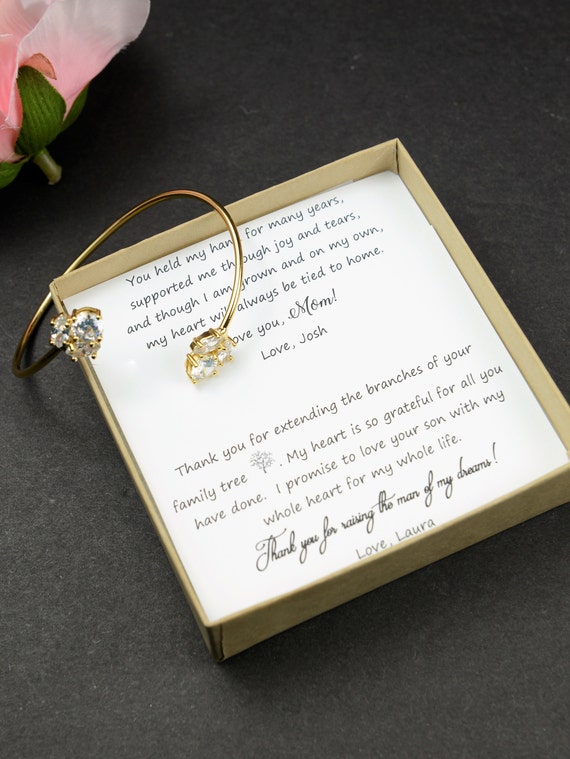 You held my hand for many years,
supported me through joy and tears,
and though I am grown and on my own,
my heart will always be tied to home.
love you, Mom!
Love, Josh
Thank you for extending the branches of your
family tree . My heart is so grateful for all you
have done. I promise to love your son with my
whole heart for my whole life.
Thank you for raising the man of my dreams!
Love, Laura